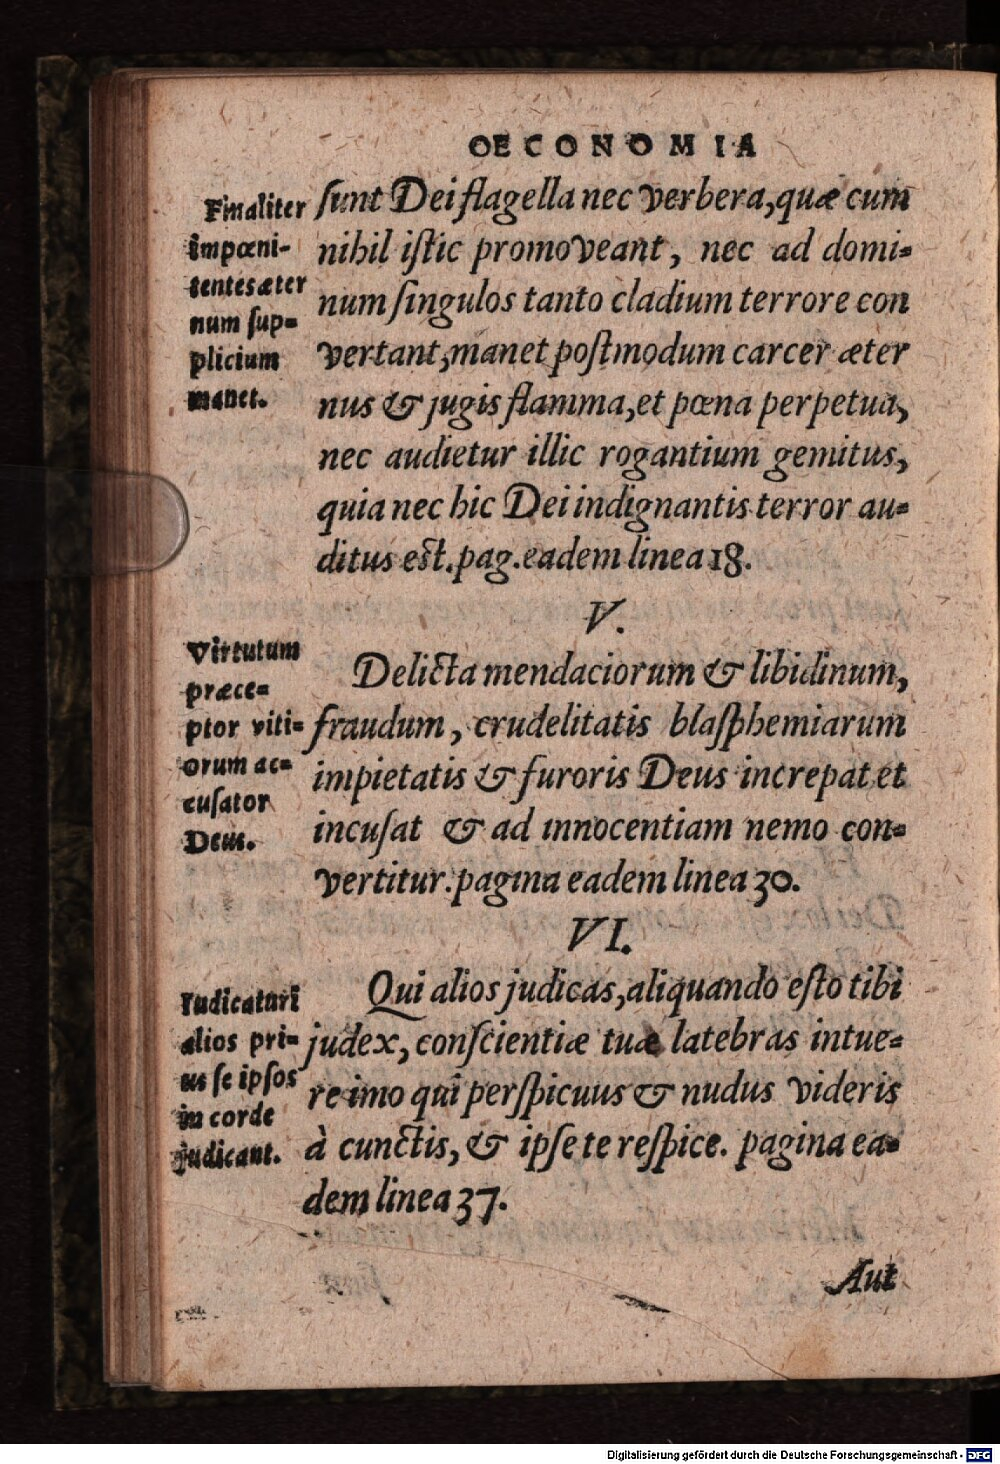 OECONOMIA
Finaliter
impœni-
tentes æter
num sup-
plicium
manet.
ſunt Dei flagella nec verbera, quæ cum
nihil iſtic promoveant, nec ad domi-
num ſingulos tanto cladium terrore con
vertant, manet poſtmodum carcer æter
nus & jugis flamma, et pœna perpetua,
nec audietur illic rogantium gemitus,
quia nec hic Dei indignantis terror au-
ditus est. pag. eadem linea 18.
V.
Virtutum
præce-
ptor viti-
orum ac-
cuſator
Deus.
Delicta mendaciorum & libidinum,
fraudum, crudelitatis blaſphemiarum
impietatis & furoris Deus increpat et
incuſat & ad innocentiam nemo con-
vertitur. pagina eadem linea 30.
VI.
Iudicaturi
alios pri-
us ſe ipſos
in corde
judicant.
Qui alios judicas, aliquando eſto tibi
judex, conſcientiæ tuæ latebras intue-
re imo qui perſpicuus & nudus videris
à cunctis, & ipſe te reſpice. pagina ea-
dem linea 37.
Aut
Digitalisierung gefördert durch die Deutsche Forschungsgemeinschaft - DFG